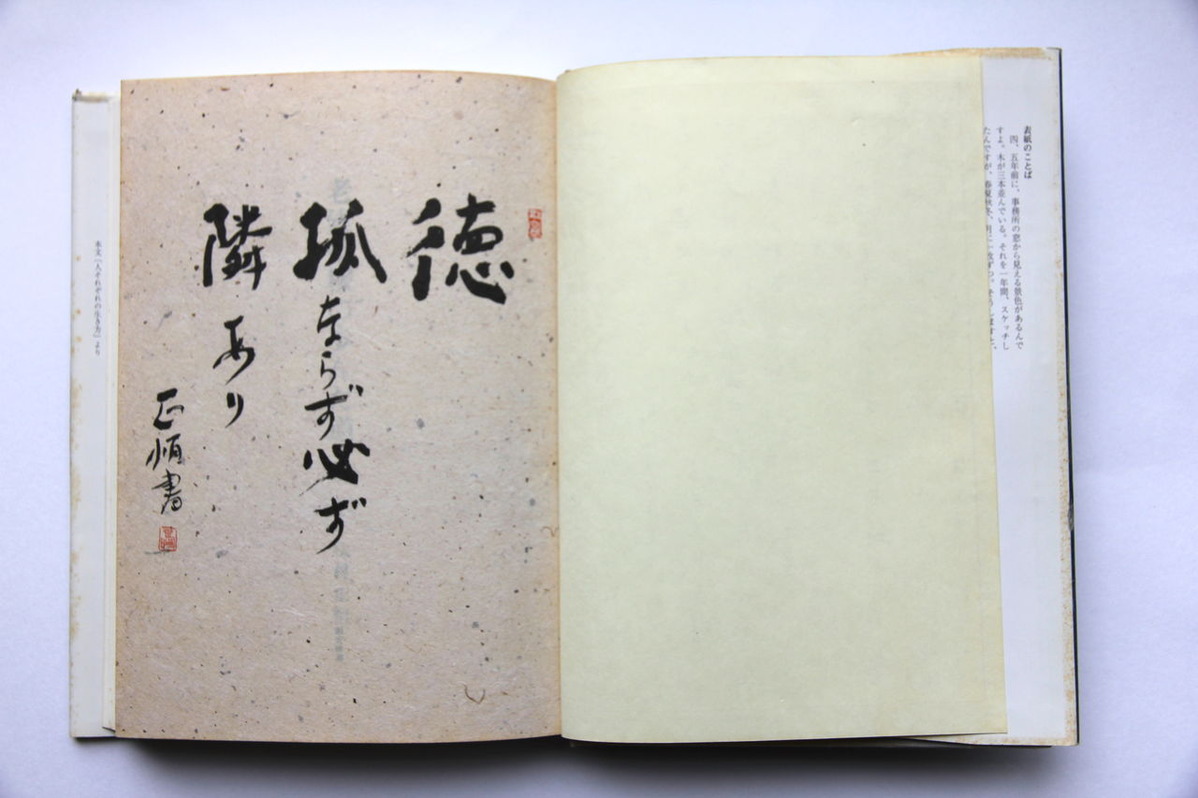 表紙のことば
四、五年前に、事務所の窓から見える景色があるんで
すよ。木が三本並んでいる。それを一年間、スケッチし
たんですが、春夏秋冬、
徳
孤ならず必ず
隣あり
正
書
本文「人それぞれの生き方」より